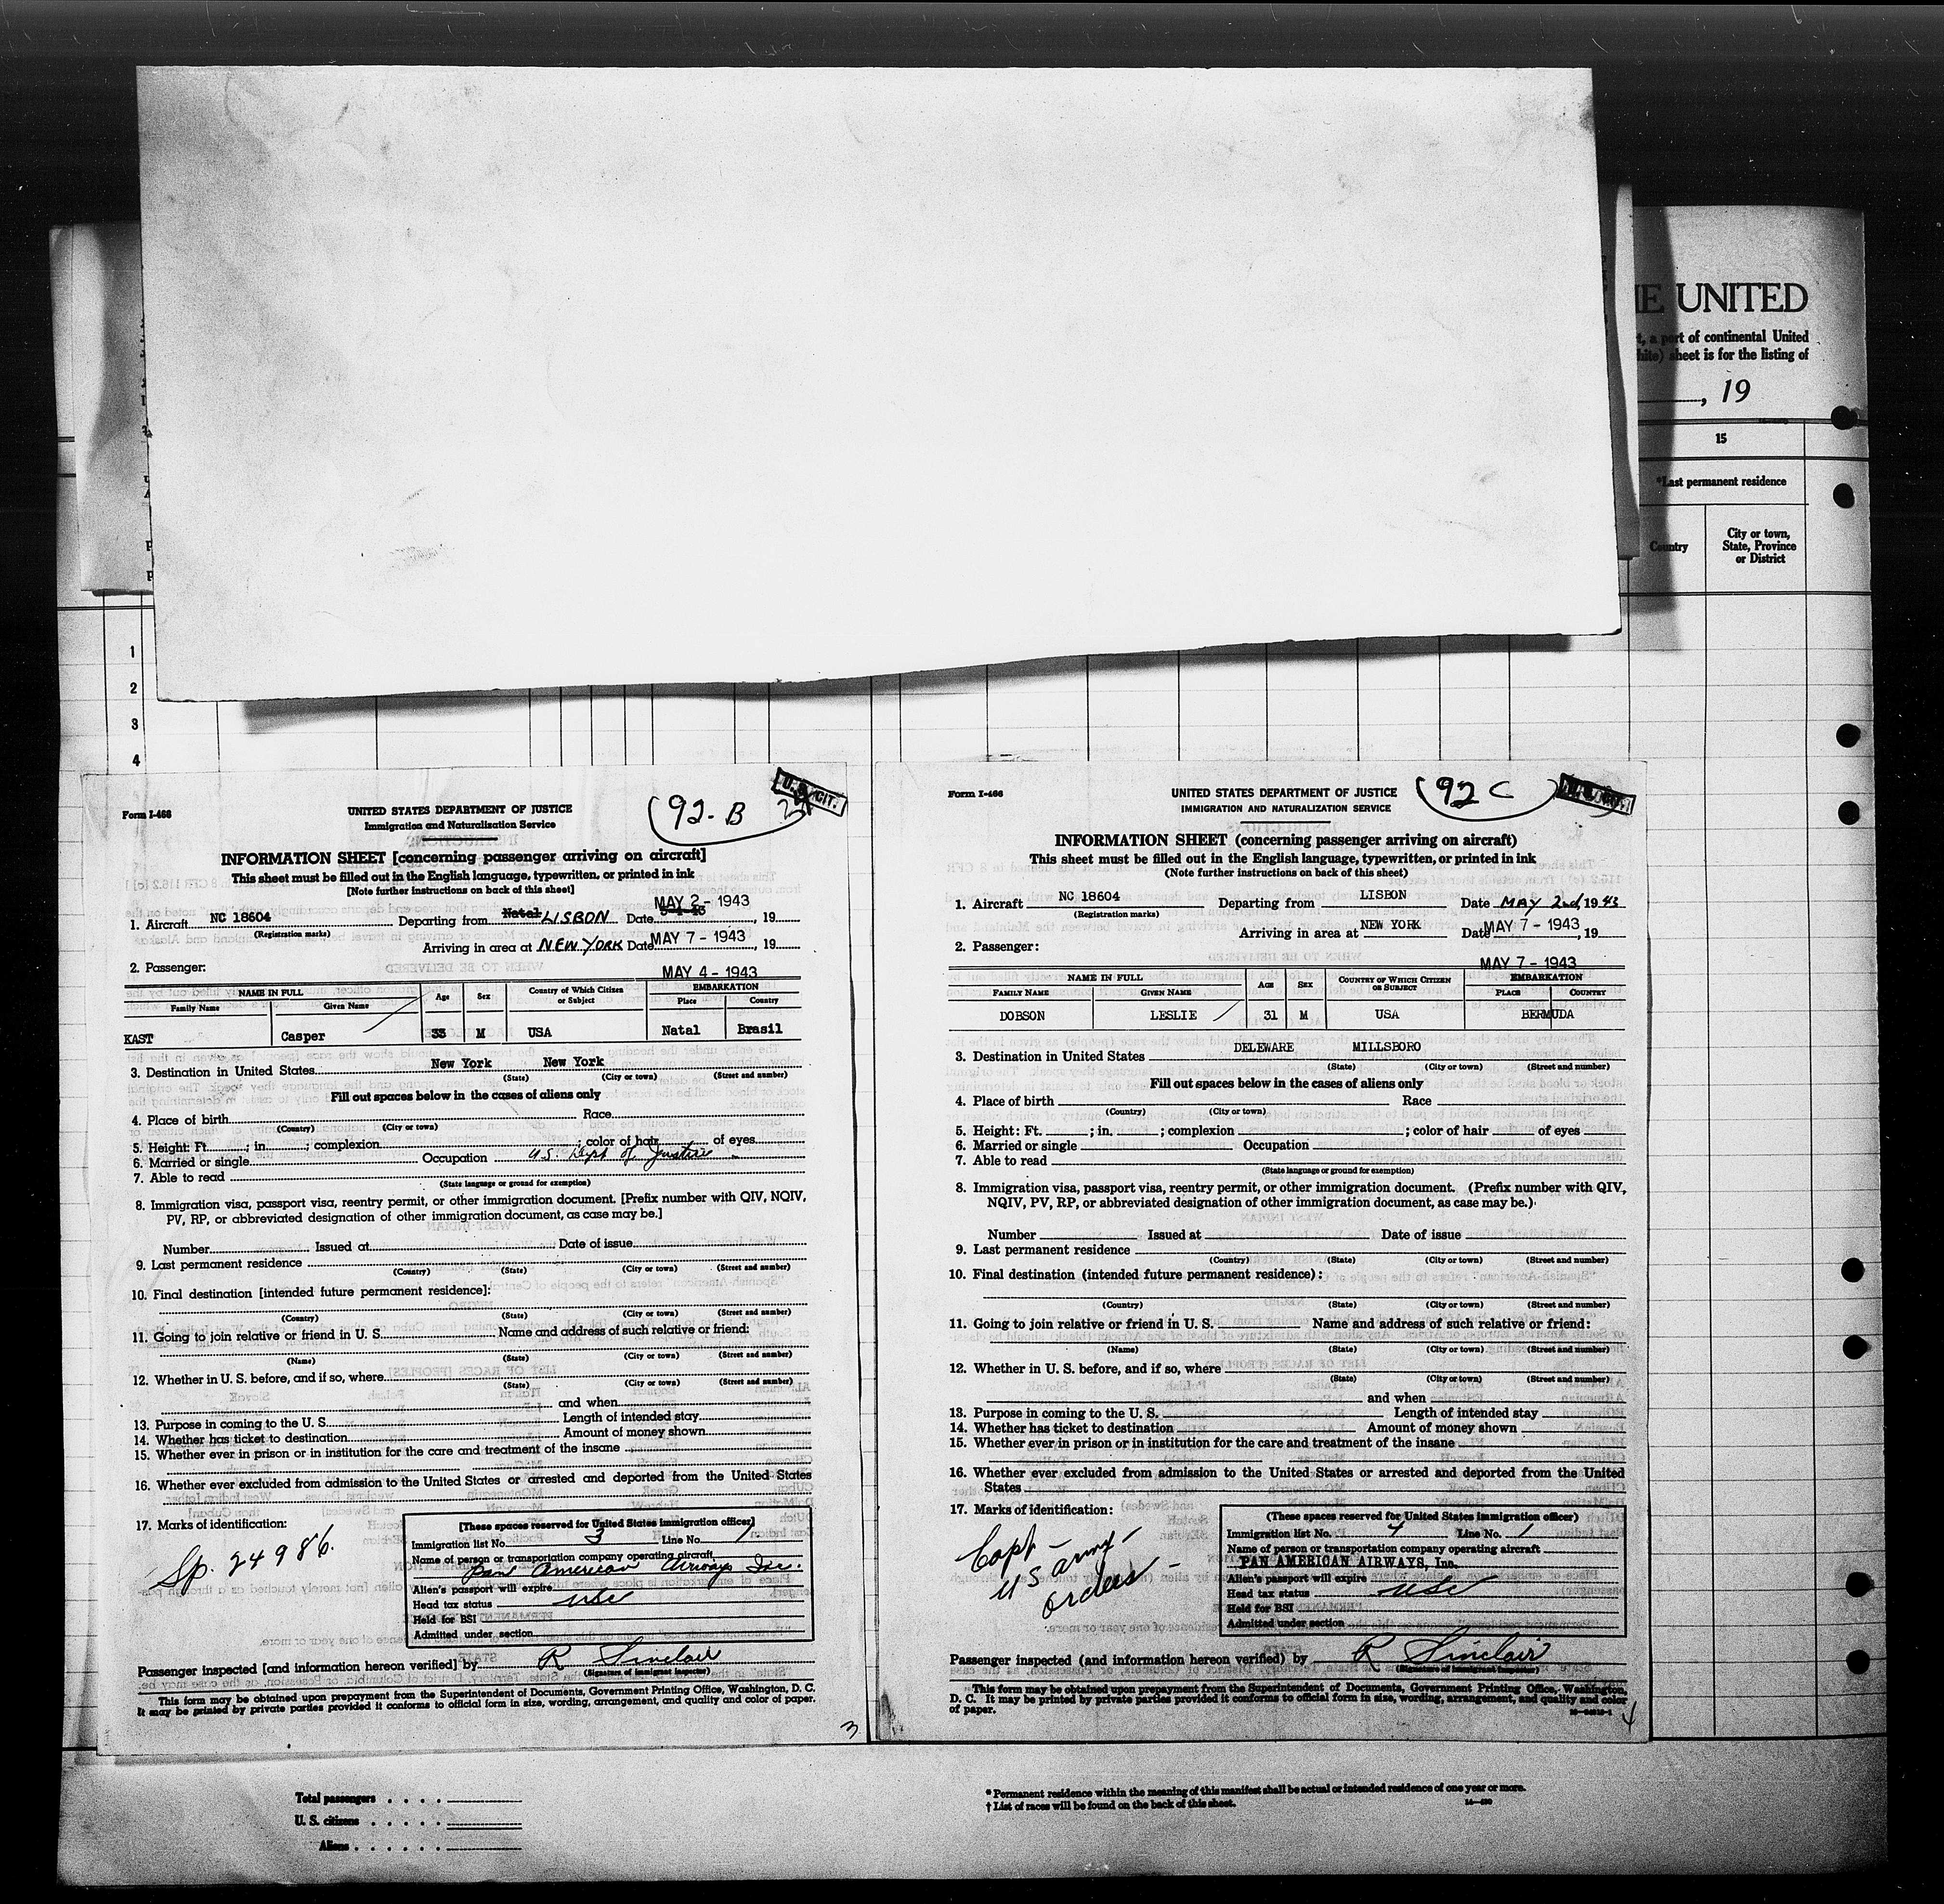 UNITED
, a part of continental United
sheet is for the listing of
, 19
15
*Last permanent residence
Country
City or town,
State, Province
or District
1
2
3
4
Form I-466
UNITED STATES DEPARTMENT OF JUSTICE
Immigration and Naturalization Service
(92-B
U.S. CIT.
INFORMATION SHEET [concerning passenger arriving on aircraft]
This sheet must be filled out in the English language, typewritten, or printed in ink
[Note further instructions on back of this sheet]
1. Aircraft NC 18604 Departing from Natal LISBON Date MAY 2 - 1943, 19
(Registration marks)
Arriving in area at NEW YORK Date MAY 7 - 1943, 19
2. Passenger:
MAY 4 - 1943
NAME IN FULL Age Sex Country of Which Citizen or Subject EMBARKATION
Family Name Given Name Place Country
KAST Casper 33 M USA Natal Brasil
3. Destination in United States New York New York
(State) (City or town) (Street and number)
Fill out spaces below in the cases of aliens only
4. Place of birth Race
(Country) (City or town)
5. Height: Ft. ; in. ; complexion ; color of hair of eyes
6. Married or single Occupation U.S. Dept of Justice
7. Able to read
(State language or ground for exemption)
8. Immigration visa, passport visa, reentry permit, or other immigration document. [Prefix number with QIV, NQIV,
PV, RP, or abbreviated designation of other immigration document, as case may be.]
Number Issued at Date of issue
9. Last permanent residence
(Country) (State) (City or town) (Street and number)
10. Final destination [intended future permanent residence]:
(Country) (State) (City or town) (Street and number)
11. Going to join relative or friend in U. S. Name and address of such relative or friend:
(Name) (State) (City or town) (Street and number)
12. Whether in U. S. before, and if so, where
(State) (City or town) (Street and number)
and when
13. Purpose in coming to the U. S. Length of intended stay
14. Whether has ticket to destination Amount of money shown
15. Whether ever in prison or in institution for the care and treatment of the insane
16. Whether ever excluded from admission to the United States or arrested and deported from the United States
17. Marks of identification:
Sp. 24986.
[These spaces reserved for United States immigration officer]
Immigration list No. 3 Line No. 1
Name of person or transportation company operating aircraft
Pan American Airways Inc.
Alien's passport will expire
Head tax status USC
Held for BSI
Admitted under section
Passenger inspected [and information hereon verified] by R Sinclair
(Signature of immigrant inspector)
This form may be obtained upon prepayment from the Superintendent of Documents, Government Printing Office, Washington, D. C.
It may be printed by private parties provided it conforms to official form in size, wording, arrangement, and quality and color of paper.
3
Form I-466
UNITED STATES DEPARTMENT OF JUSTICE
IMMIGRATION AND NATURALIZATION SERVICE
(92 C )
INFORMATION SHEET (concerning passenger arriving on aircraft)
This sheet must be filled out in the English language, typewritten, or printed in ink
(Note further instructions on back of this sheet)
1. Aircraft NC 18604 Departing from LISBON Date MAY 2nd, 1943
(Registration marks)
Arriving in area at NEW YORK Date MAY 7 - 1943, 19
2. Passenger:
MAY 7 - 1943
NAME IN FULL AGE SEX COUNTRY OF WHICH CITIZEN OR SUBJECT EMBARKATION
FAMILY NAME GIVEN NAME PLACE COUNTRY
DOBSON LESLIE 31 M USA BERMUDA
3. Destination in United States DELEWARE MILLSBORO
(State) (City or town) (Street and number)
Fill out spaces below in the cases of aliens only
4. Place of birth Race
(Country) (City or town)
5. Height: Ft. ; in. ; complexion ; color of hair of eyes
6. Married or single Occupation
7. Able to read
(State language or ground for exemption)
8. Immigration visa, passport visa, reentry permit, or other immigration document. (Prefix number with QIV,
NQIV, PV, RP, or abbreviated designation of other immigration document, as case may be.)
Number Issued at Date of issue
9. Last permanent residence
(Country) (State) (City or town) (Street and number)
10. Final destination (intended future permanent residence):
(Country) (State) (City or town) (Street and number)
11. Going to join relative or friend in U. S. Name and address of such relative or friend:
(Name) (State) (City or town) (Street and number)
12. Whether in U. S. before, and if so, where
(State) (City or town) (Street and number)
and when
13. Purpose in coming to the U. S. Length of intended stay
14. Whether has ticket to destination Amount of money shown
15. Whether ever in prison or in institution for the care and treatment of the insane
16. Whether ever excluded from admission to the United States or arrested and deported from the United
States
17. Marks of identification:
Capt -
US army -
orders -
(These spaces reserved for United States immigration officer)
Immigration list No. 4 Line No. 1
Name of person or transportation company operating aircraft
PAN AMERICAN AIRWAYS, Inc.
Alien's passport will expire
Head tax status USC
Held for BSI
Admitted under section
Passenger inspected (and information hereon verified) by R Sinclair
(Signature of immigrant inspector)
This form may be obtained upon prepayment from the Superintendent of Documents, Government Printing Office, Washington,
D. C. It may be printed by private parties provided it conforms to official form in size, wording, arrangement, and quality and color
of paper.
4
Total passengers . . . .
U. S. citizens . . . . .
Aliens . . . . . .
* Permanent residence within the meaning of this manifest shall be actual or intended residence of one year or more.
† List of races will be found on the back of this sheet.